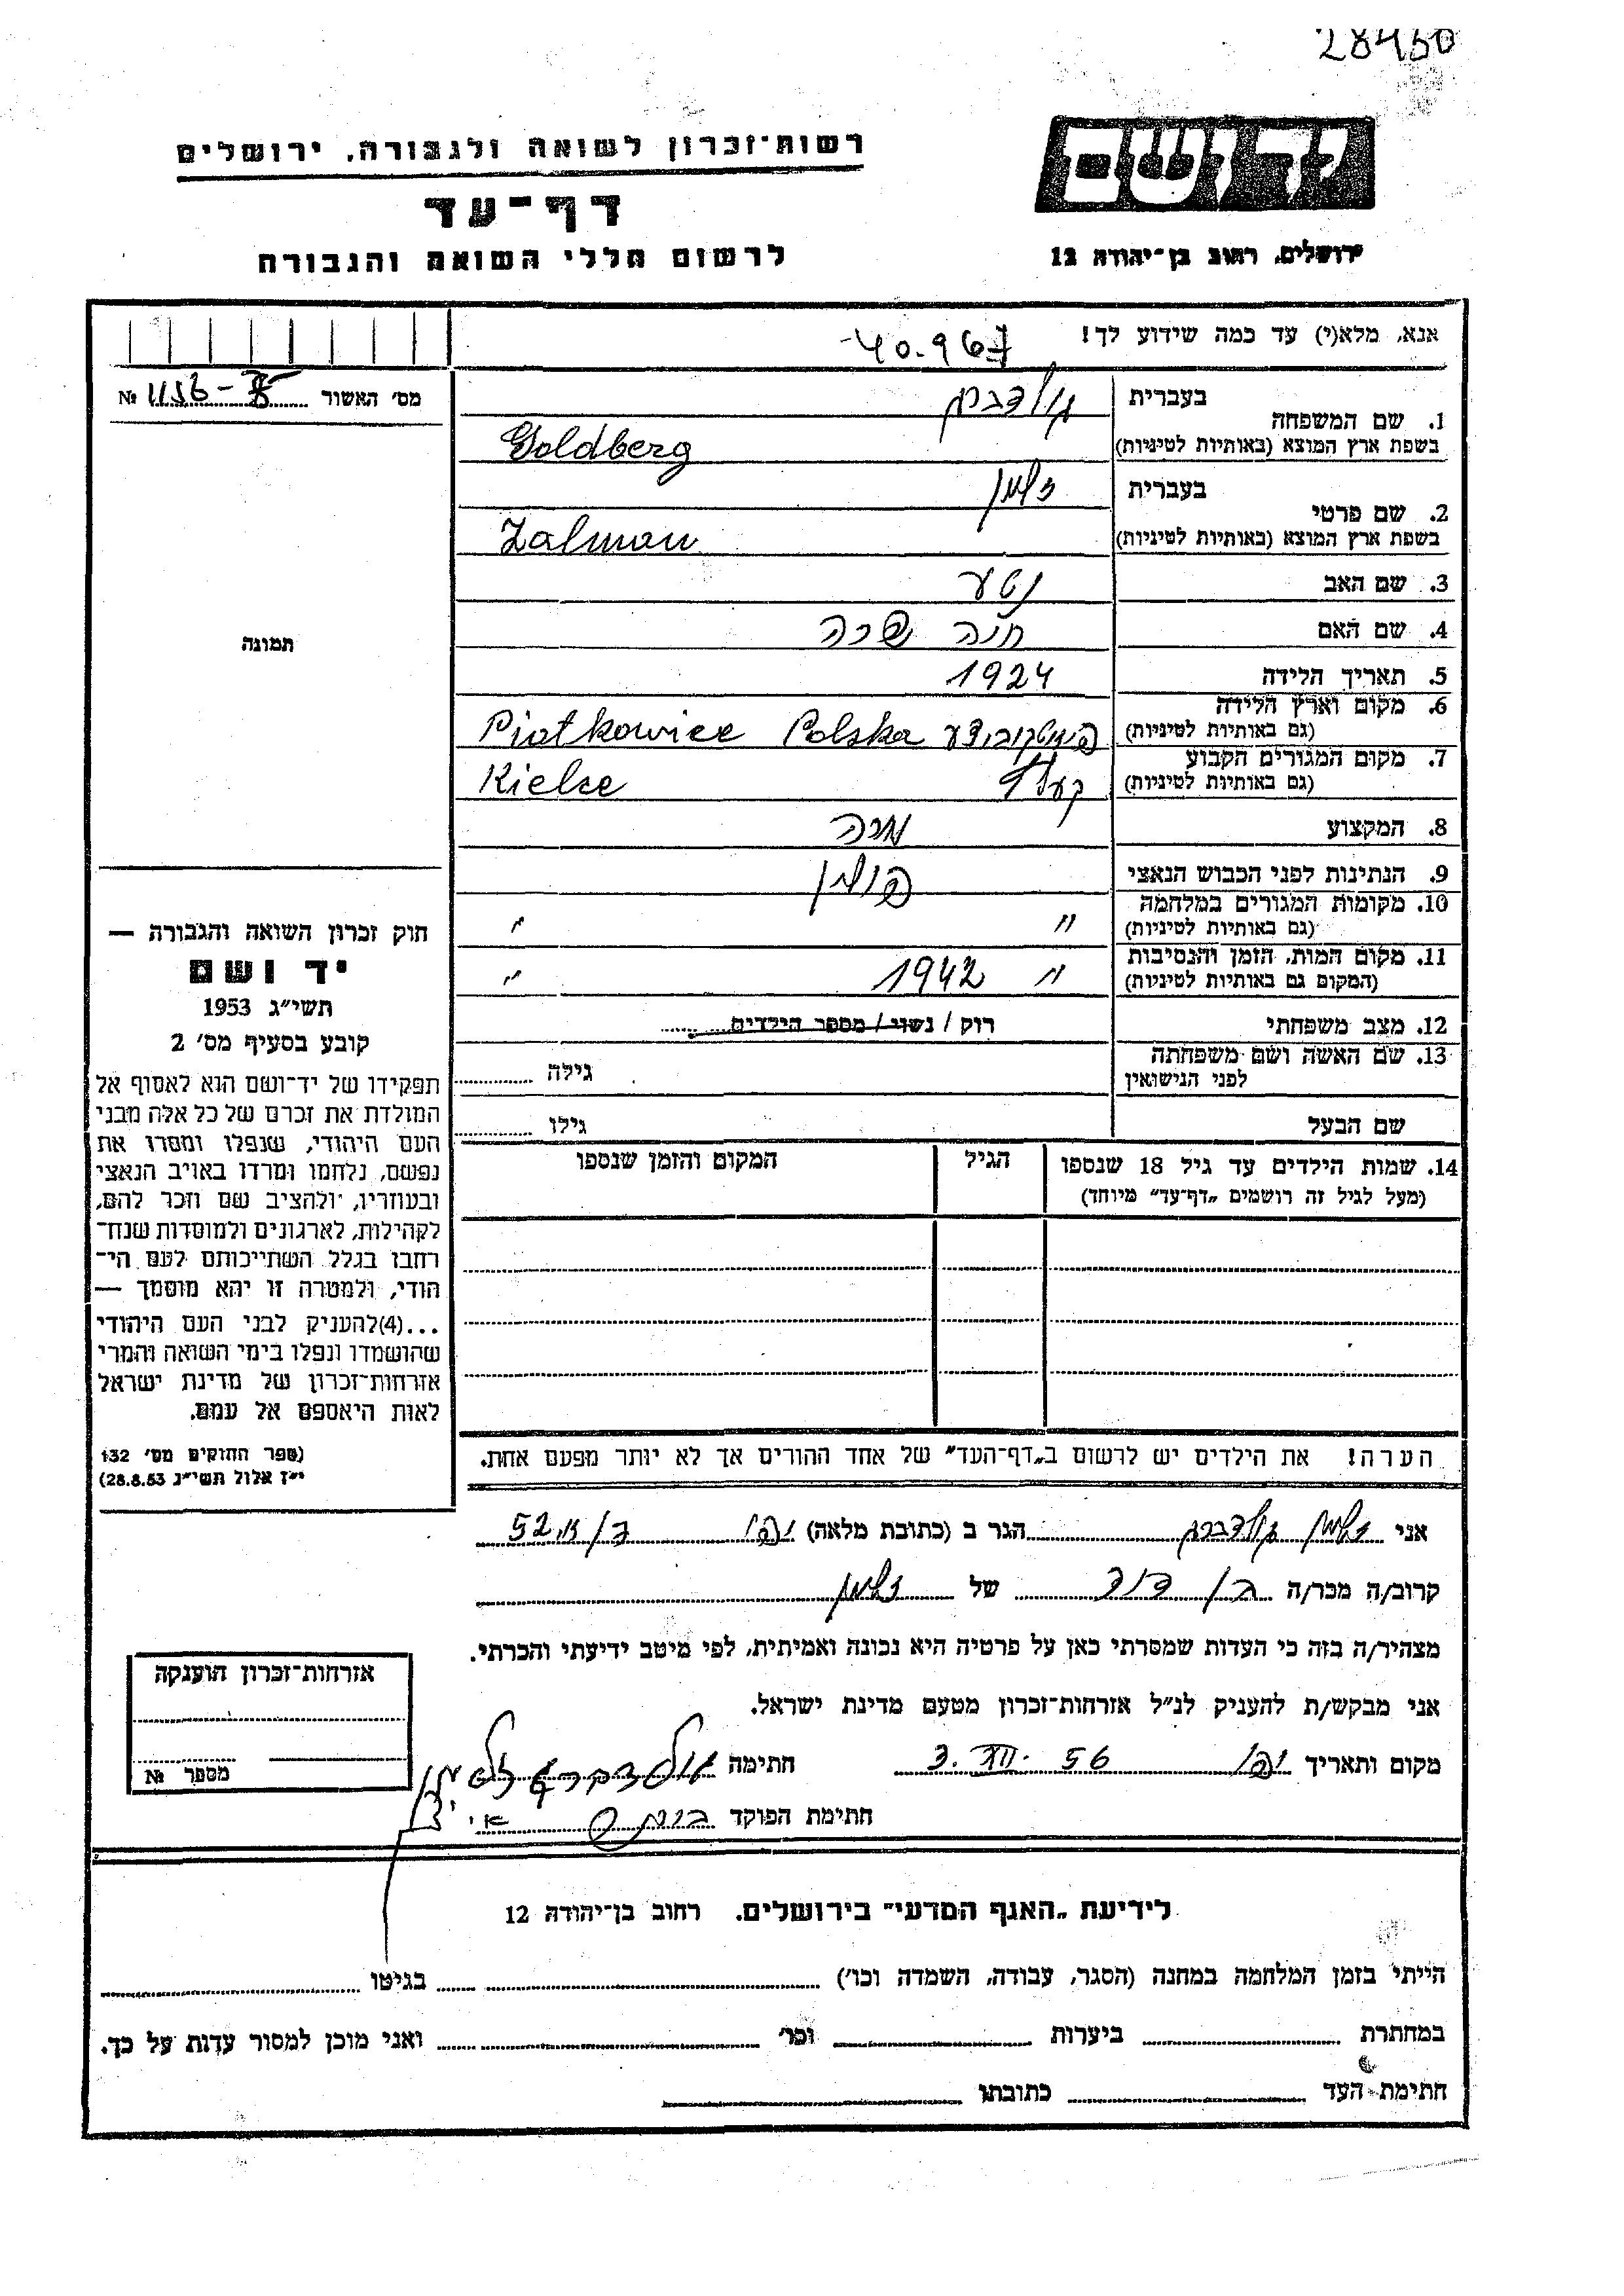 28450
יד ושם
רשות־זכרון לשואה ולגבורה, ירושלים
דף־עד
לרשום חללי השואה והגבורה
ירושלים, רחוב בן־יהודה 12
אנא, מלא(י) עד כמה שידוע לך!
40.967
מס' האשור №
1. שם המשפחה
בעברית גולדברג
בשפת ארץ המוצא (באותיות לטיניות) Goldberg
2. שם פרטי
בעברית זלמן
בשפת ארץ המוצא (באותיות לטיניות) Zalman
3. שם האב נטע
4. שם האם חנה שרה
5. תאריך הלידה 1924
6. מקום וארץ הלידה
(גם באותיות לטיניות) Piatkowice Polska
7. מקום המגורים הקבוע
(גם באותיות לטיניות) קעלץ Kielce
8. המקצוע
9. הנתינות לפני הכבוש הנאצי פולין
10. מקומות המגורים במלחמה
(גם באותיות לטיניות) " "
11. מקום המות, הזמן והנסיבות
(המקום גם באותיות לטיניות) " 1942 "
12. מצב משפחתי רוק / נשוי / מספר הילדים
13. שם האשה ושם משפחתה
לפני הנישואין
גילה
שם הבעל
גילו
14. שמות הילדים עד גיל 18 שנספו
(מעל לגיל זה רושמים „דף־עד" מיוחד)
הגיל
המקום והזמן שנספו
הערה! את הילדים יש לרשום ב„דף־העד" של אחד ההורים אך לא יותר מפעם אחת.
תמונה
חוק זכרון השואה והגבורה —
יד ושם
תשי״ג 1953
קובע בסעיף מס' 2
תפקידו של יד־ושם הוא לאסוף אל
המולדת את זכרם של כל אלה מבני
העם היהודי, שנפלו ומסרו את
נפשם, נלחמו ומרדו באויב הנאצי
ובעוזריו, ולהציב שם וזכר להם,
לקהילות, לארגונים ולמוסדות שנח־
רחבו בגלל השתייכותם לעם הי־
הודי, ולמטרה זו יהא מוסמך —
...(4)להעניק לבני העם היהודי
שהושמדו ונפלו בימי השואה והמרי
אזרחות־זכרון של מדינת ישראל
לאות היאספם אל עמם.
(ספר החוקים מס' 132
י״ז אלול תשי״ג 28.8.53)
אני זלמן גולדברג הגר ב (כתובת מלאה) יפו 52
קרוב/ה מכר/ה בן דוד של זלמן
מצהיר/ה בזה כי העדות שמסרתי כאן על פרטיה היא נכונה ואמיתית, לפי מיטב ידיעתי והכרתי.
אני מבקש/ת להעניק לנ״ל אזרחות־זכרון מטעם מדינת ישראל.
מקום ותאריך יפו 56 חתימה
חתימת הפוקד
אזרחות־זכרון הוענקה
מספר №
לידיעת „האגף המדעי" בירושלים, רחוב בן־יהודה 12
הייתי בזמן המלחמה במחנה (הסגר, עבודה, השמדה וכו') בגיטו
במחתרת ביערות וכו' ואני מוכן למסור עדות על כך.
חתימת העד כתובתו